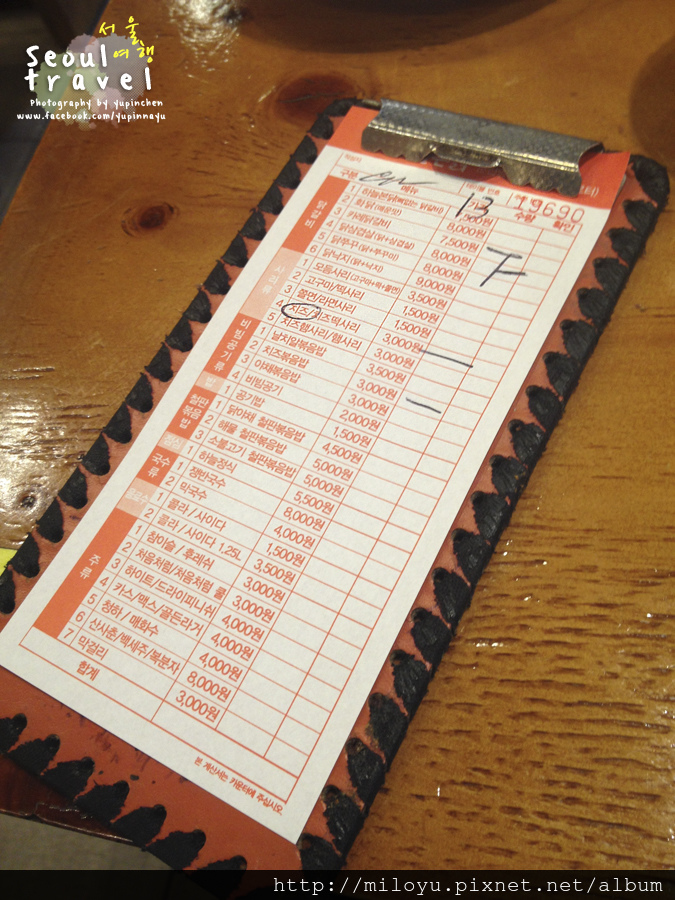 서울
여행
Seoul
travel
Photography by yupinchen
www.facebook.com/yupinnayu
테이블 번호
13 19690
구분 메뉴 수량 확인
닭갈비
1 하늘본닭(뼈없는 닭갈비) 7,500원
2 화닭(매운맛) 8,000원
3 카레닭갈비 7,500원
4 닭삼겹살(닭+삼겹살) 8,000원
5 닭쭈꾸(닭+쭈꾸미) 8,000원
6 닭낙지(닭+낙지) 9,000원
사리류
1 모듬사리(고구마+떡+쫄면) 3,500원
2 고구마/떡사리 1,500원
3 쫄면/라면사리 1,500원
4 치즈/치즈떡사리 3,000원
5 치즈햄사리/햄사리 3,000원
비빔공기류
1 날치알볶음밥 3,500원
2 치즈볶음밥 3,000원
3 야채볶음밥 3,000원
4 비빔공기 2,000원
밥
1 공기밥 1,500원
철판볶음밥
1 닭야채 철판볶음밥 4,500원
2 해물 철판볶음밥 5,000원
3 소불고기 철판볶음밥 5,000원
정식
1 하늘정식 5,500원
국수류
1 쟁반국수 8,000원
2 막국수 4,000원
음료수
1 콜라 / 사이다 1,500원
2 콜라 / 사이다 1.25L 3,500원
주류
1 참이슬 / 후레쉬 3,000원
2 처음처럼/처음처럼 쿨 3,000원
3 하이트/드라이피니쉬 4,000원
4 카스/맥스/골든라거 4,000원
5 청하 / 매화수 4,000원
6 산사춘/백세주/복분자 8,000원
7 막걸리 3,000원
합계
본 계산서는 카운터에 주십시오.
http://miloyu.pixnet.net/album